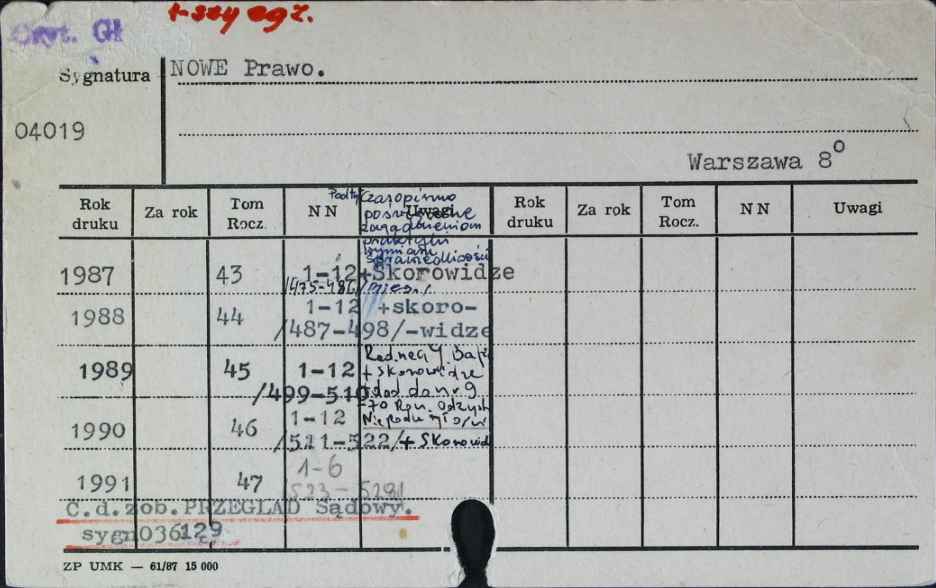 + szy egz.
Czyt. Gł
Sygnatura
NOWE Prawo.
04019
Warszawa 8°
Rok druku
Za rok
Tom Rocz.
NN
Uwagi
Rok druku
Za rok
Tom Rocz..
NN
Uwagi
Podtyt
Czasopismo
poświęcone
zagadnieniom
praktyki
wymiaru
sprawiedliwości
1987 43 1-12+Skorowidze
/475-486/ mies.
1988 44 1-12 +skoro-
/487-498/-widze
1989 45 1-12 Red. nacz.
+ skorowidze
/499-510 dod do nr 9
1990 46 1-12 70 Odzysk
Niepodległości
/511-522/+ Skorowid
1991 47 1-6
523-528/
C.d.zob.PRZEGLĄD Sądowy.
sygn036129
ZP UMK — 61/87 15 000